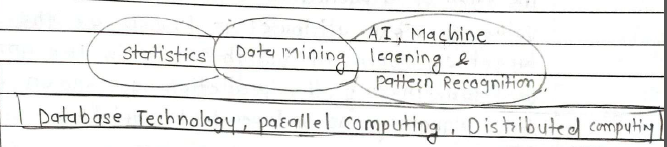 AI, Machine
Statistics Data Mining learning &
Pattern Recognition.
Database Technology, parallel computing, Distributed computing